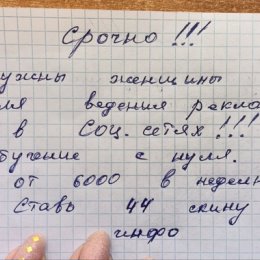 Срочно!!!
ужны женщины
ля ведения рекла
в соц. сетях!!!
бучение с нуля.
от 6000 в недел
Ставь 44 скину
инфо